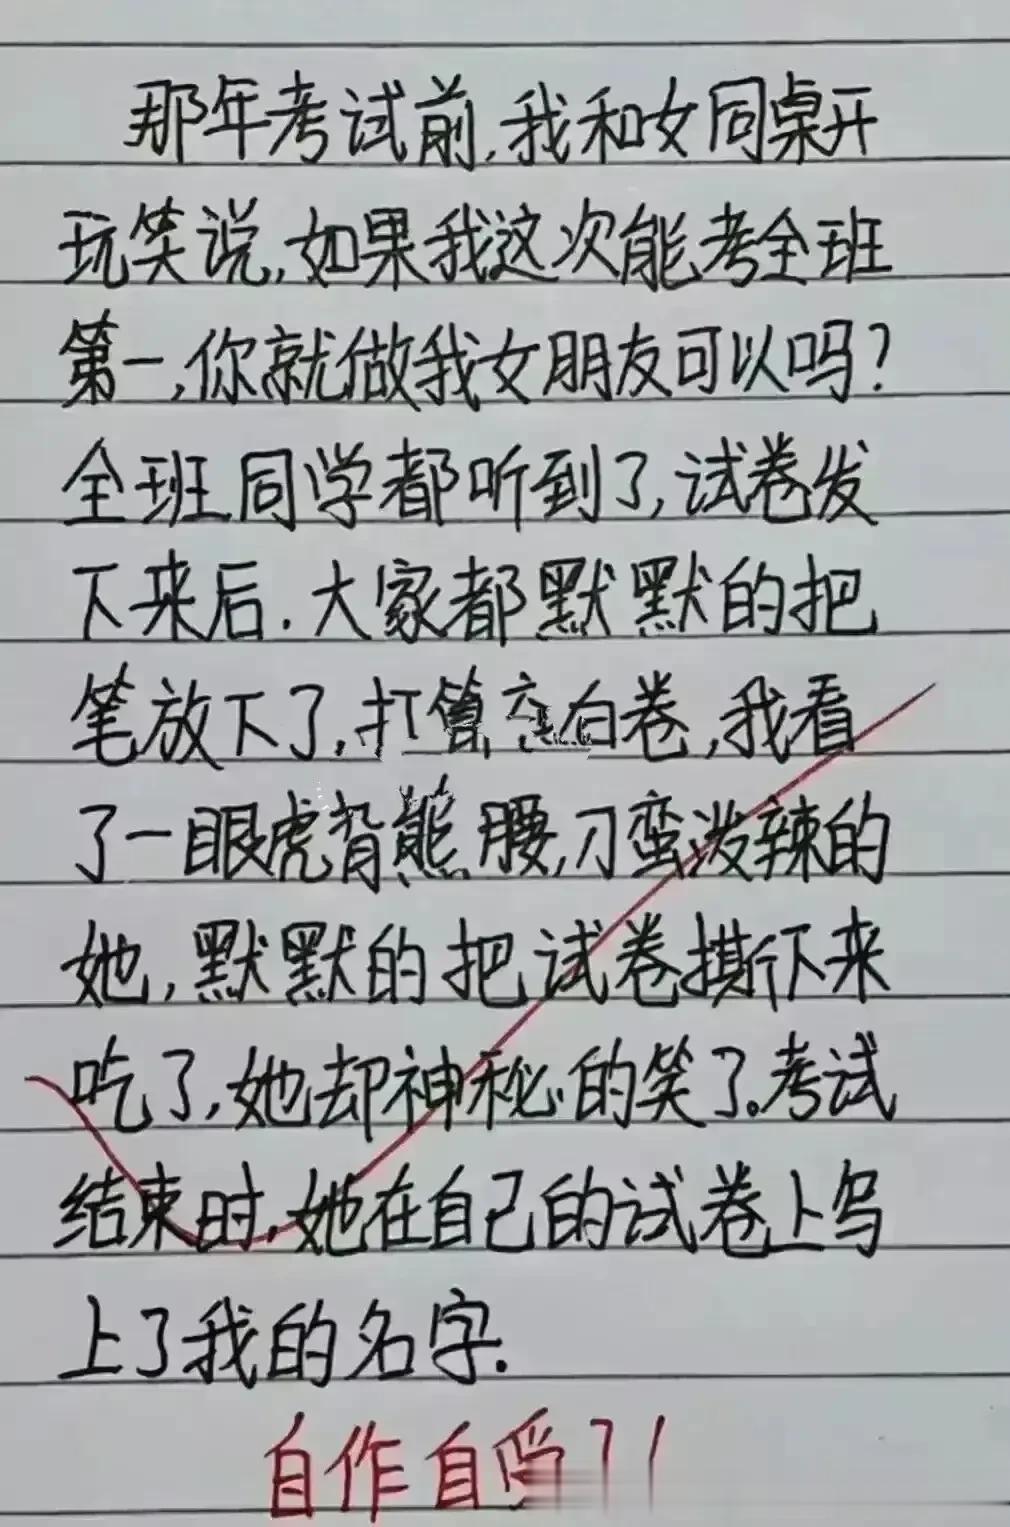 那年考试前,我和女同桌开
玩笑说,如果我这次能考全班
第一,你就做我女朋友可以吗?
全班同学都听到了,试卷发
下来后.大家都默默的把
笔放下了,打算交白卷,我看
了一眼虎背熊腰,刁蛮泼辣的
她,默默的把试卷撕下来
吃了,她却神秘的笑了。考试
结束时,她在自己的试卷上写
上了我的名字.
自作自受